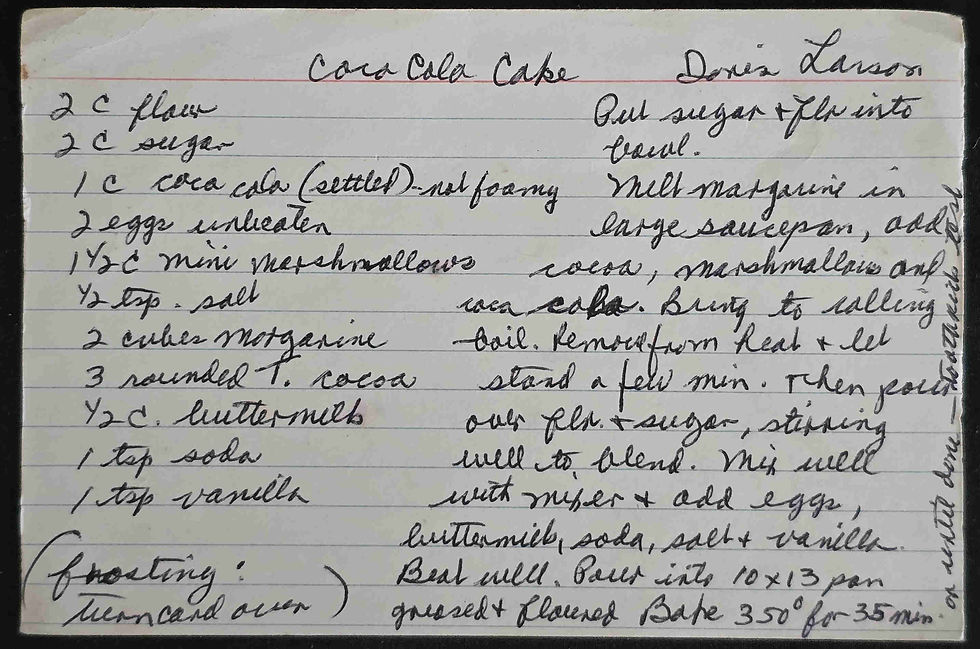 Coca Cola Cake Doris Larson
2 C flour
2 C sugar
1 C coca cola (settled) - not foamy
2 eggs unbeaten
1 1/2 C mini marshmallows
1/2 tsp. salt
2 cubes margarine
3 rounded T. cocoa
1/2 C. buttermilk
1 tsp soda
1 tsp vanilla
(frosting:
turn card over)
Put sugar + flr into
bowl.
Melt margarine in
large saucepan, add
cocoa, marshmallows and
coca cola. Bring to rolling
boil. Remove from heat & let
stand a few min. Then pour
over flr. + sugar, stirring
well to blend. Mix well
with mixer & add eggs,
buttermilk, soda, salt & vanilla.
Beat well. Pour into 10x13 pan
greased & floured Bake 350° for 35 min.
or until done — toothpick